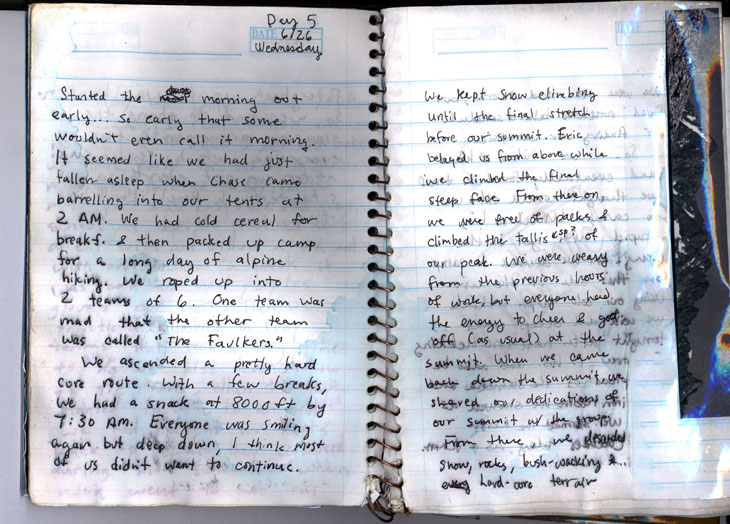 Day 5
DATE 6/26
Wednesday
Started the morning out
early... so early that some
wouldn't even call it morning.
It seemed like we had just
fallen asleep when Chase came
barrelling into our tents at
2 AM. We had cold cereal for
breakf. & then packed up camp
for a long day of alpine
hiking. We roped up into
2 teams of 6. One team was
mad that the other team
was called "The Faulkers."
We ascended a pretty hard
core route. With a few breaks,
we had a snack at 8000 ft by
7:30 AM. Everyone was smiling
again but deep down, I think most
of us didn't want to continue.
We kept snow climbing
until the final stretch
before our summit. Eric
belayed us from above while
we climbed the final
steep face. From there on
we were free of packs &
climbed the tallis <sp? of
our peak. We were weary
from the previous hours
of work, but everyone had
the energy to cheer & goof
off (as usual) at the
summit. When we came
back down the summit we
shared our dedications of
our summit w/ the group.
From there, we descended
snow, rocks, bush-wacking &...
hard-core terrain